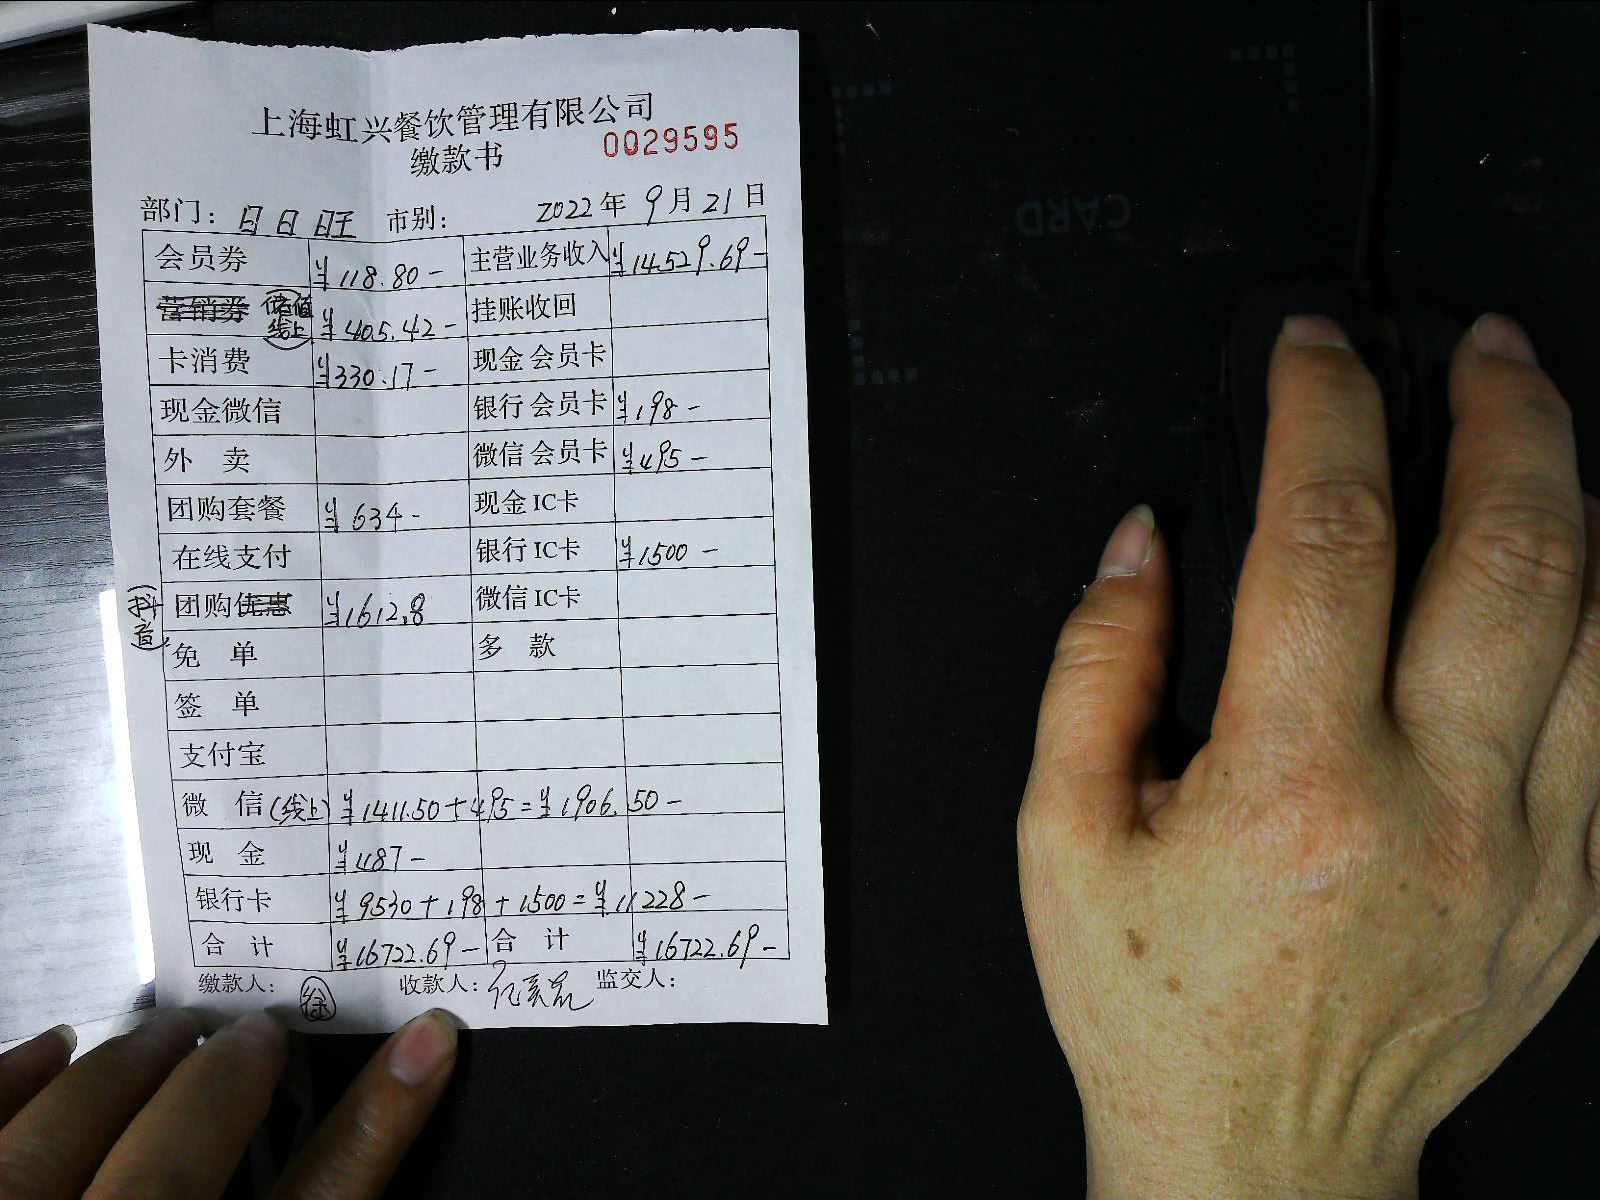 上海虹兴餐饮管理有限公司
缴款书 0029595
部门: 日日旺 市别: 2022年9月21日
会员券 ¥118.80- 主营业务收入 ¥14529.69-
营销券 (储值线上) ¥405.42- 挂账收回
卡消费 ¥330.17- 现金会员卡
现金微信 银行会员卡 ¥198-
外 卖 微信会员卡 ¥495-
团购套餐 ¥634- 现金IC卡
在线支付 银行IC卡 ¥1500-
(抖音) 团购优惠 ¥1612.8 微信IC卡
免 单 多 款
签 单
支付宝
微 信(线上) ¥1411.50+495=¥1906.50-
现 金 ¥487-
银行卡 ¥9530+198+1500=¥11228-
合 计 ¥16722.69- 合 计 ¥16722.69-
缴款人: 徐 收款人: 监交人:
CARD